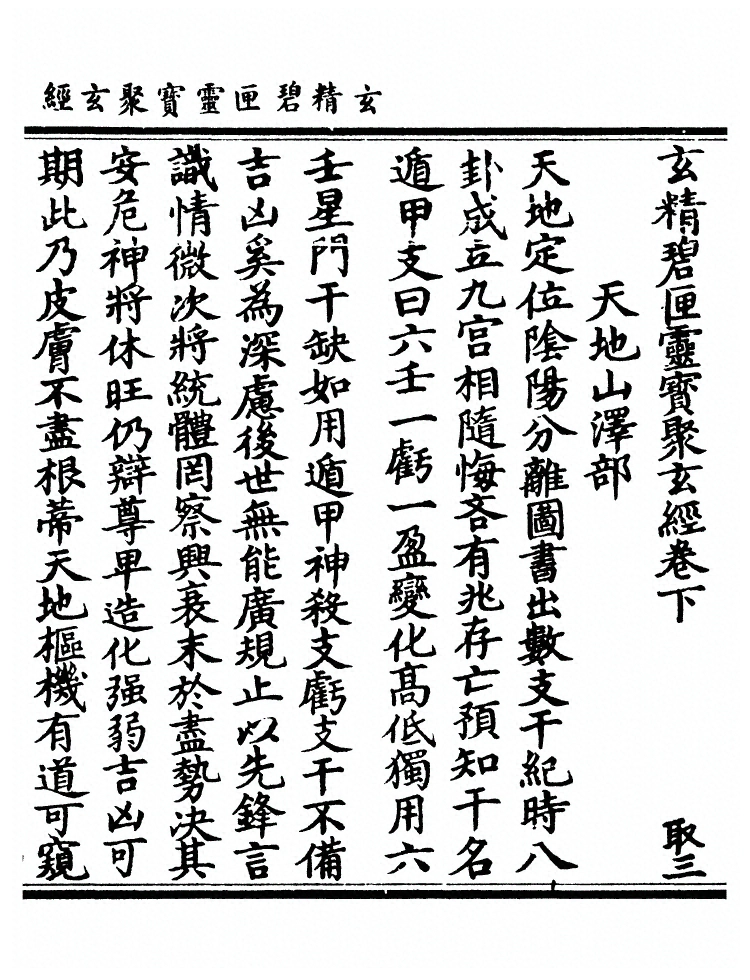 玄精碧匣靈寶聚玄經
玄精碧匣靈寶聚玄經卷下 取三
天地山澤部
天地定位陰陽分離圖書出數支干紀時八
卦成立九宮相隨悔吝有兆存亡預知干名
遁甲支曰六壬一虧一盈變化高低獨用六
壬星門干缺如用遁甲神殺支虧支干不備
吉凶奚為深慮後世無能廣規止以先鋒言
識情微次將統體罔察興衰末於盡勢决其
安危神將休旺仍辯尊卑造化强弱吉凶可
期此乃皮膚不盡根蒂天地樞機有道可窺